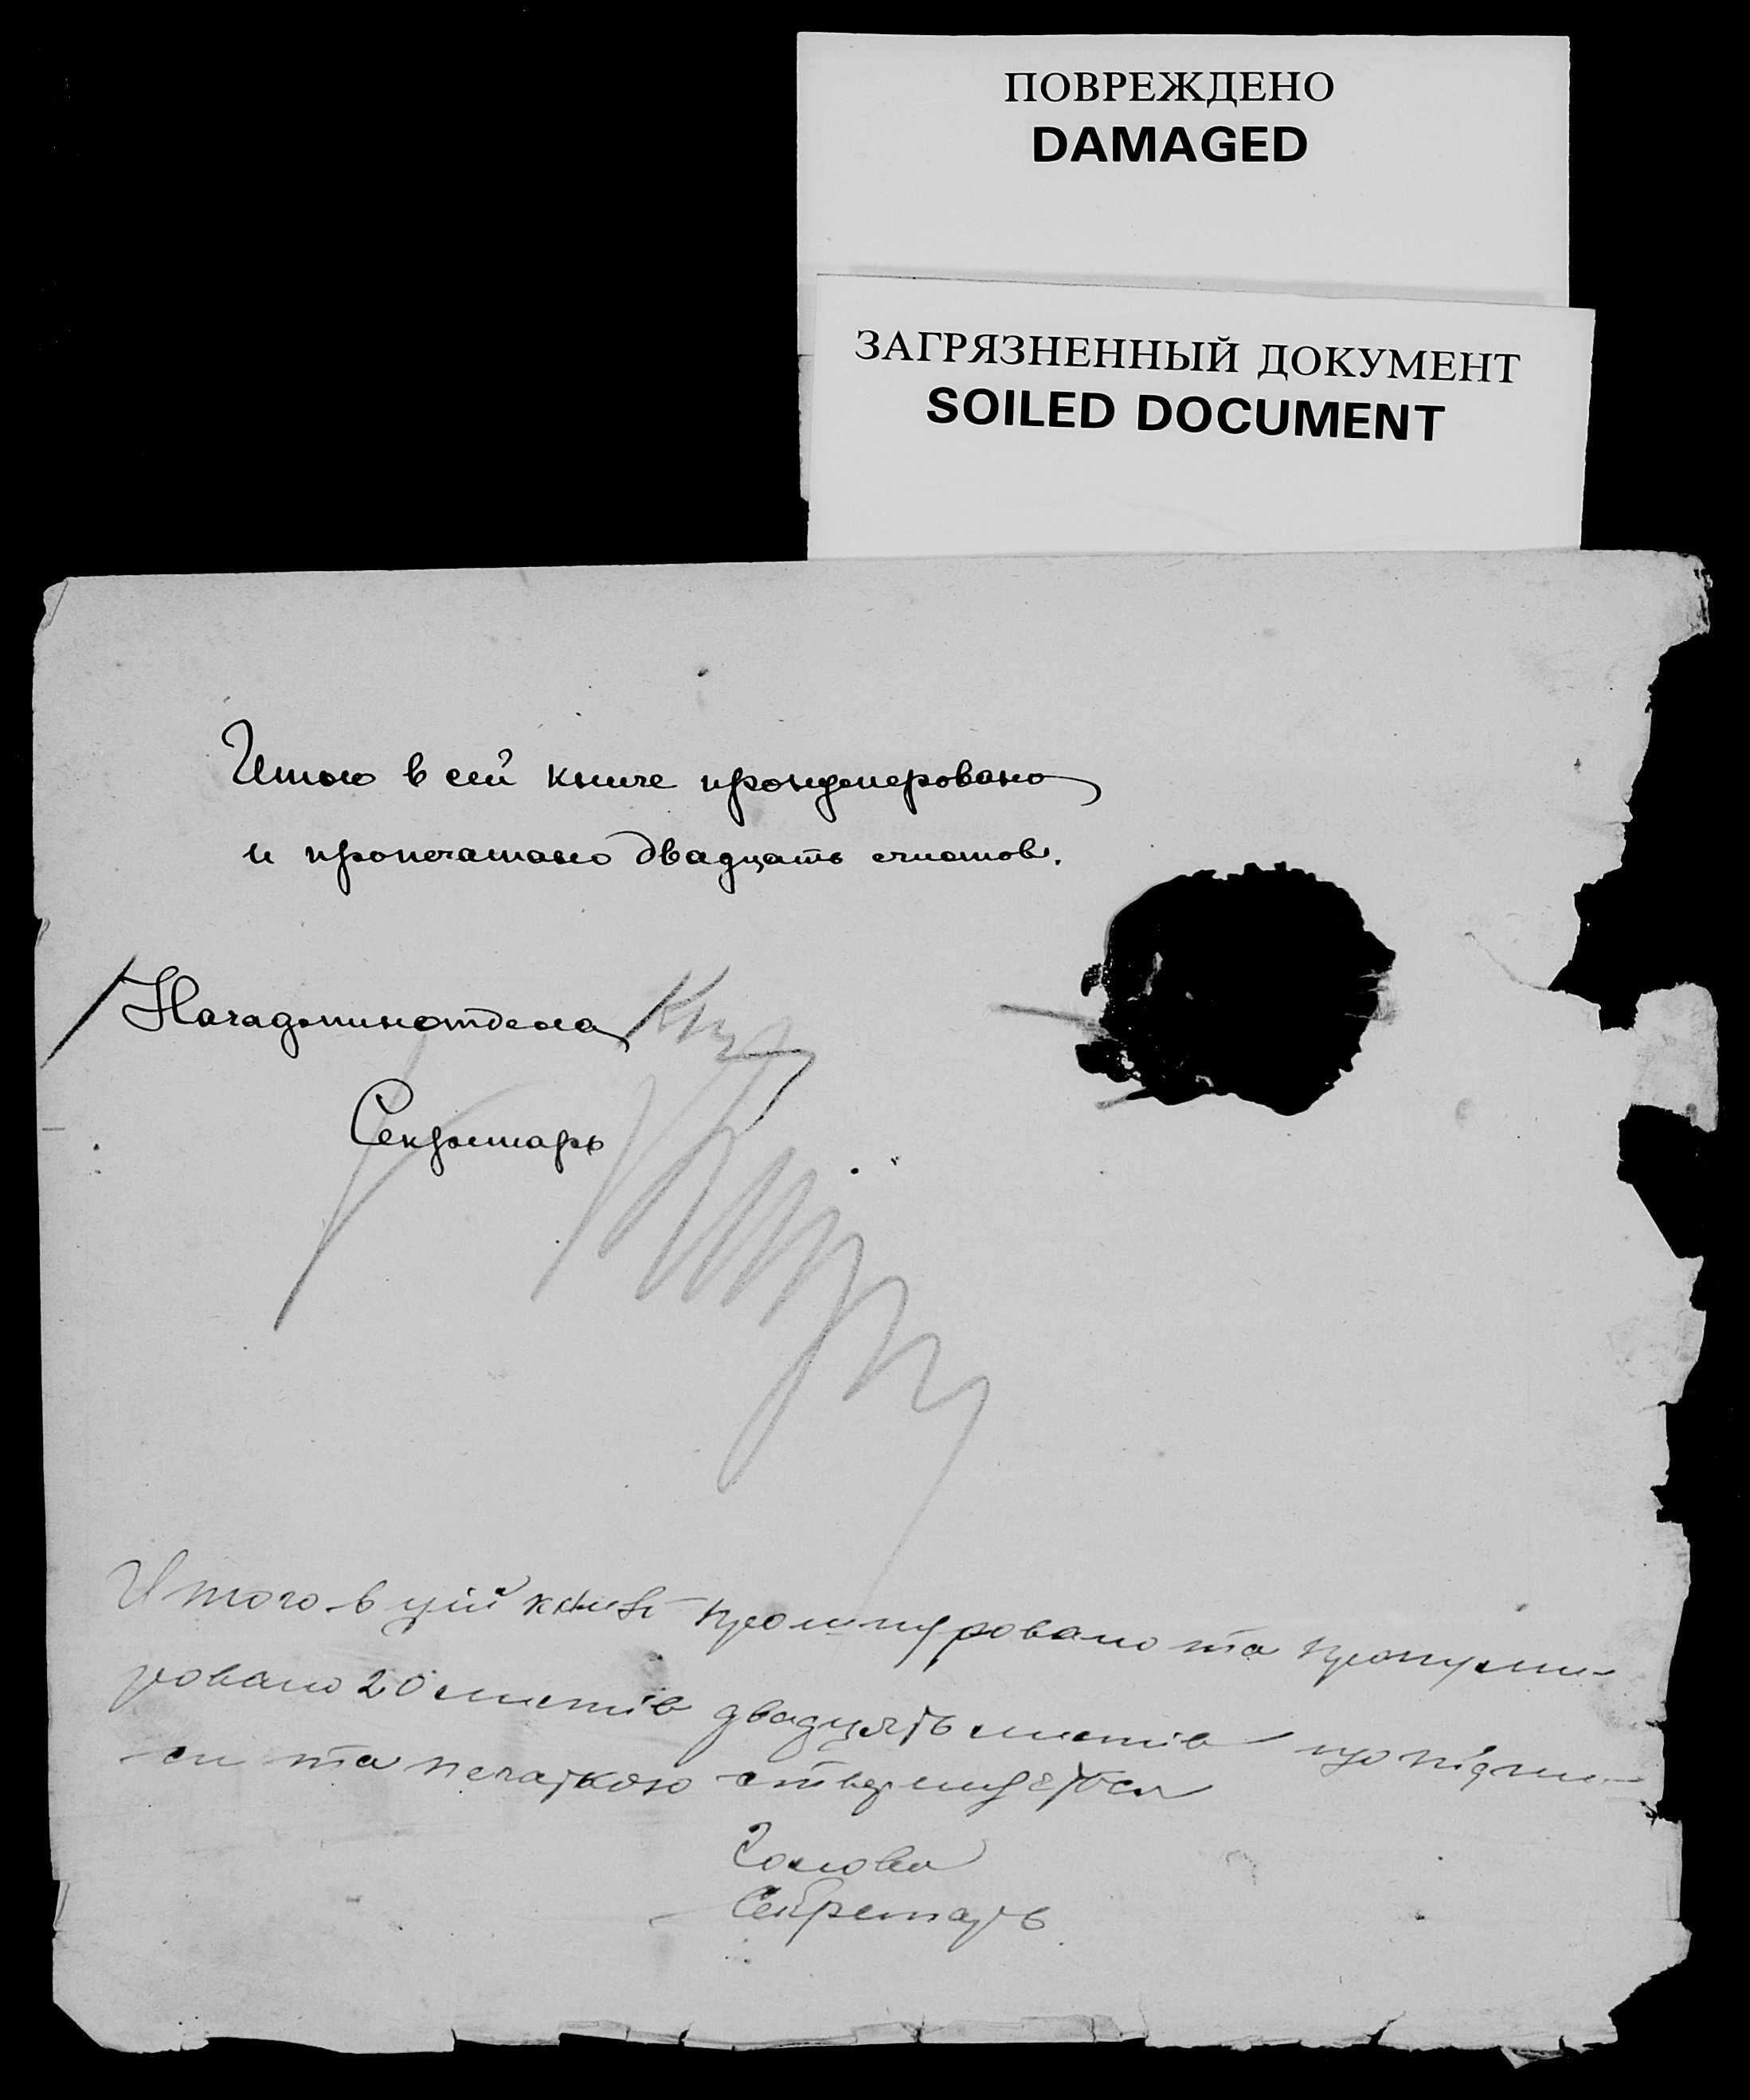 ПОВРЕЖДЕНО
DAMAGED
ЗАГРЯЗНЕННЫЙ ДОКУМЕНТ
SOILED DOCUMENT
Итого в сей книге пронумеровано
и пропечатано двадцать листов.
Начадминотдела
Секретарь
Итого в цій книзі прошнуровано та пронуме-
ровано 20 листів двадцять листів що підпи-
си та печаткою стверджується
Голова
Секретарь